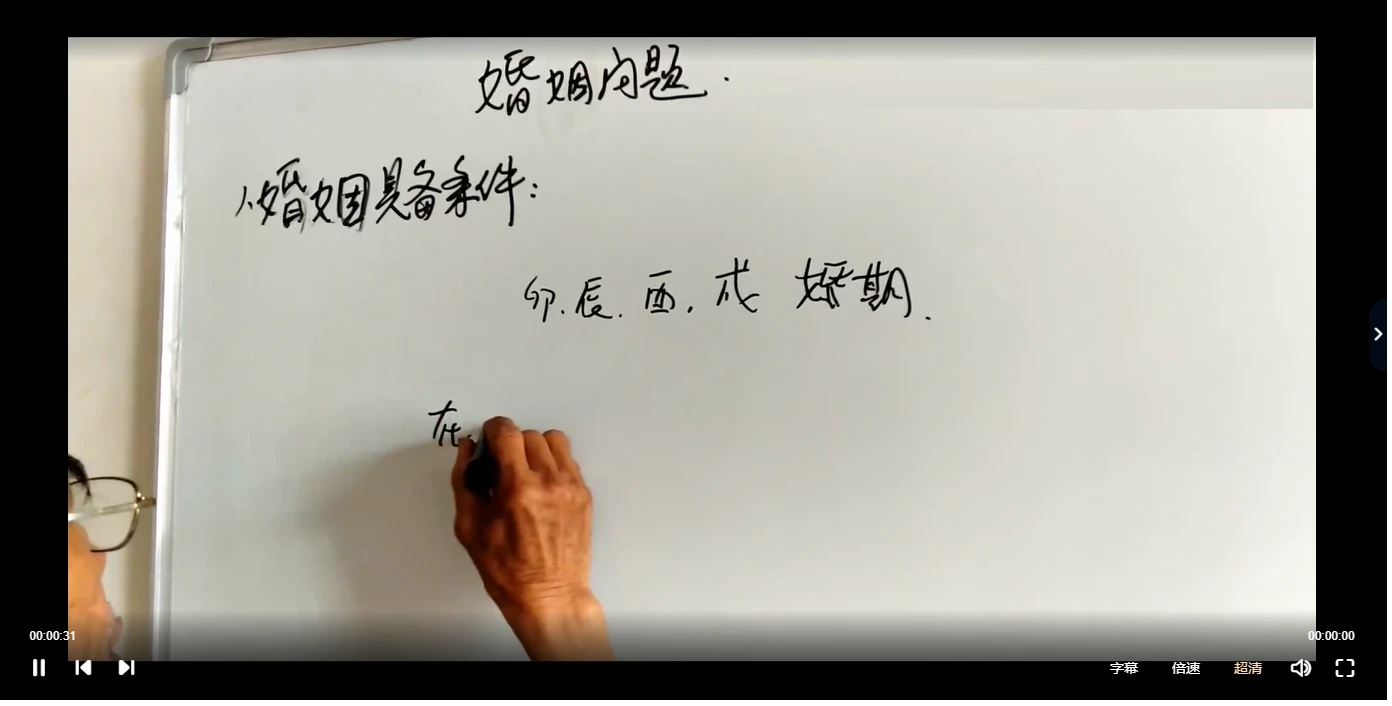 婚姻问题.
1.婚姻具备条件:
卯.辰.酉.戌 婚期.
在
00:00:31
00:00:00
字幕 倍速 超清